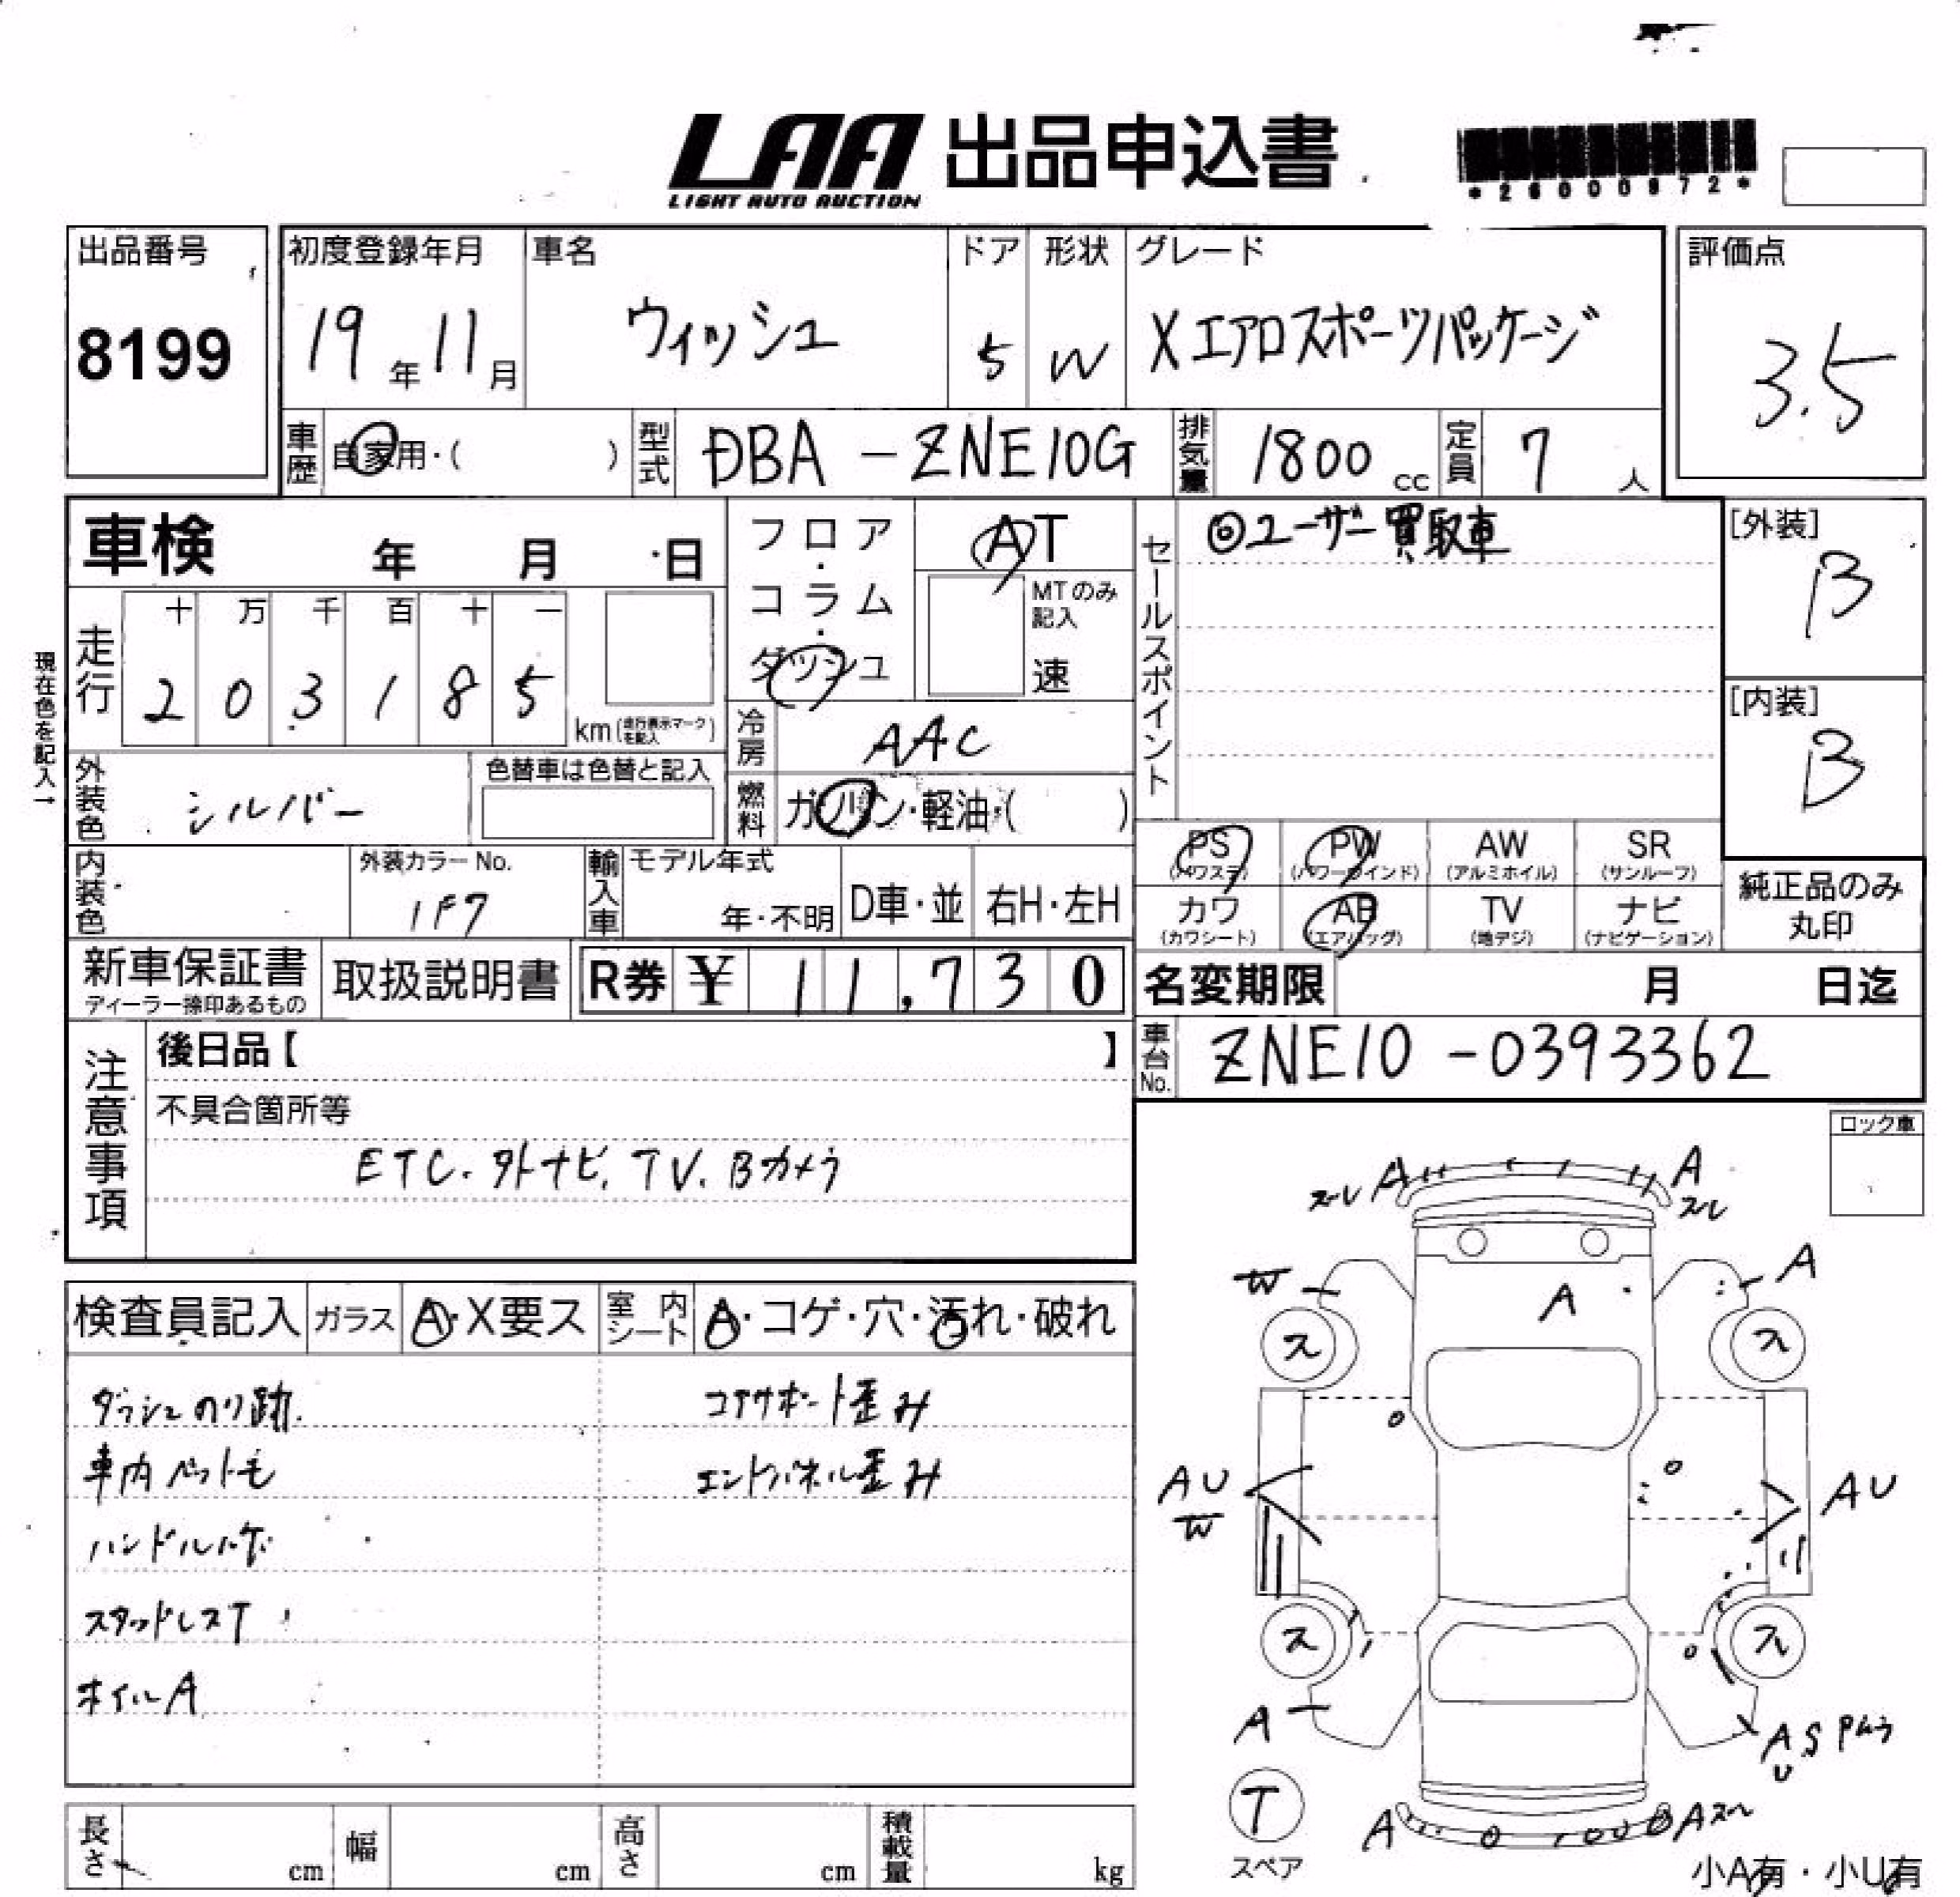 LAA 出品申込書
LIGHT AUTO AUCTION
*26000972*
出品番号
8199
初度登録年月
19年11月
車名
ウィッシュ
ドア
5
形状
W
グレード
Xエアロスポーツパッケージ
評価点
3.5
車歴
自家用・( )
型式
DBA-ZNE10G
排気量
1800 cc
定員
7 人
車検 年 月 日
フロア・コラム・ダッシュ
AT
MTのみ記入
速
セールスポイント
◎ユーザー買取車
[外装]
B
[内装]
B
現在色を記入→
走行
十 万 千 百 十 一
2 0 3 1 8 5
km(走行表示マークを記入)
冷房
AAC
外装色
シルバー
色替車は色替と記入
燃料
ガソリン・軽油・( )
PS (パワステ)
PW (パワーウインド)
AW (アルミホイル)
SR (サンルーフ)
カワ (カワシート)
AB (エアバッグ)
TV (地デジ)
ナビ (ナビゲーション)
純正品のみ丸印
内装色
外装カラーNo.
1F7
輸入車
モデル年式
年・不明
D車・並
右H・左H
新車保証書
ディーラー捺印あるもの
取扱説明書
R券 ¥ 11,730
名変期限 月 日迄
車台No.
ZNE10-0393362
注意事項
後日品【 】
不具合箇所等
ETC.外ナビ.TV.Bカメラ
ロック車
検査員記入
ガラス
A・X要ス
室内シート
A・コゲ・穴・汚れ・破れ
ダッシュのり跡
コアサポート歪み
車内ペット毛
エンドパネル歪み
ハンドルハゲ
スタッドレスT
ホイルA
A
ズレ
A
ズレ
W
A
A
ス
ス
AU
W
AU
ス
ス
A
AU S Pムラ
T
スペア
A
A ズレ
小A有・小U有
長さ cm
幅 cm
高さ cm
積載量 kg